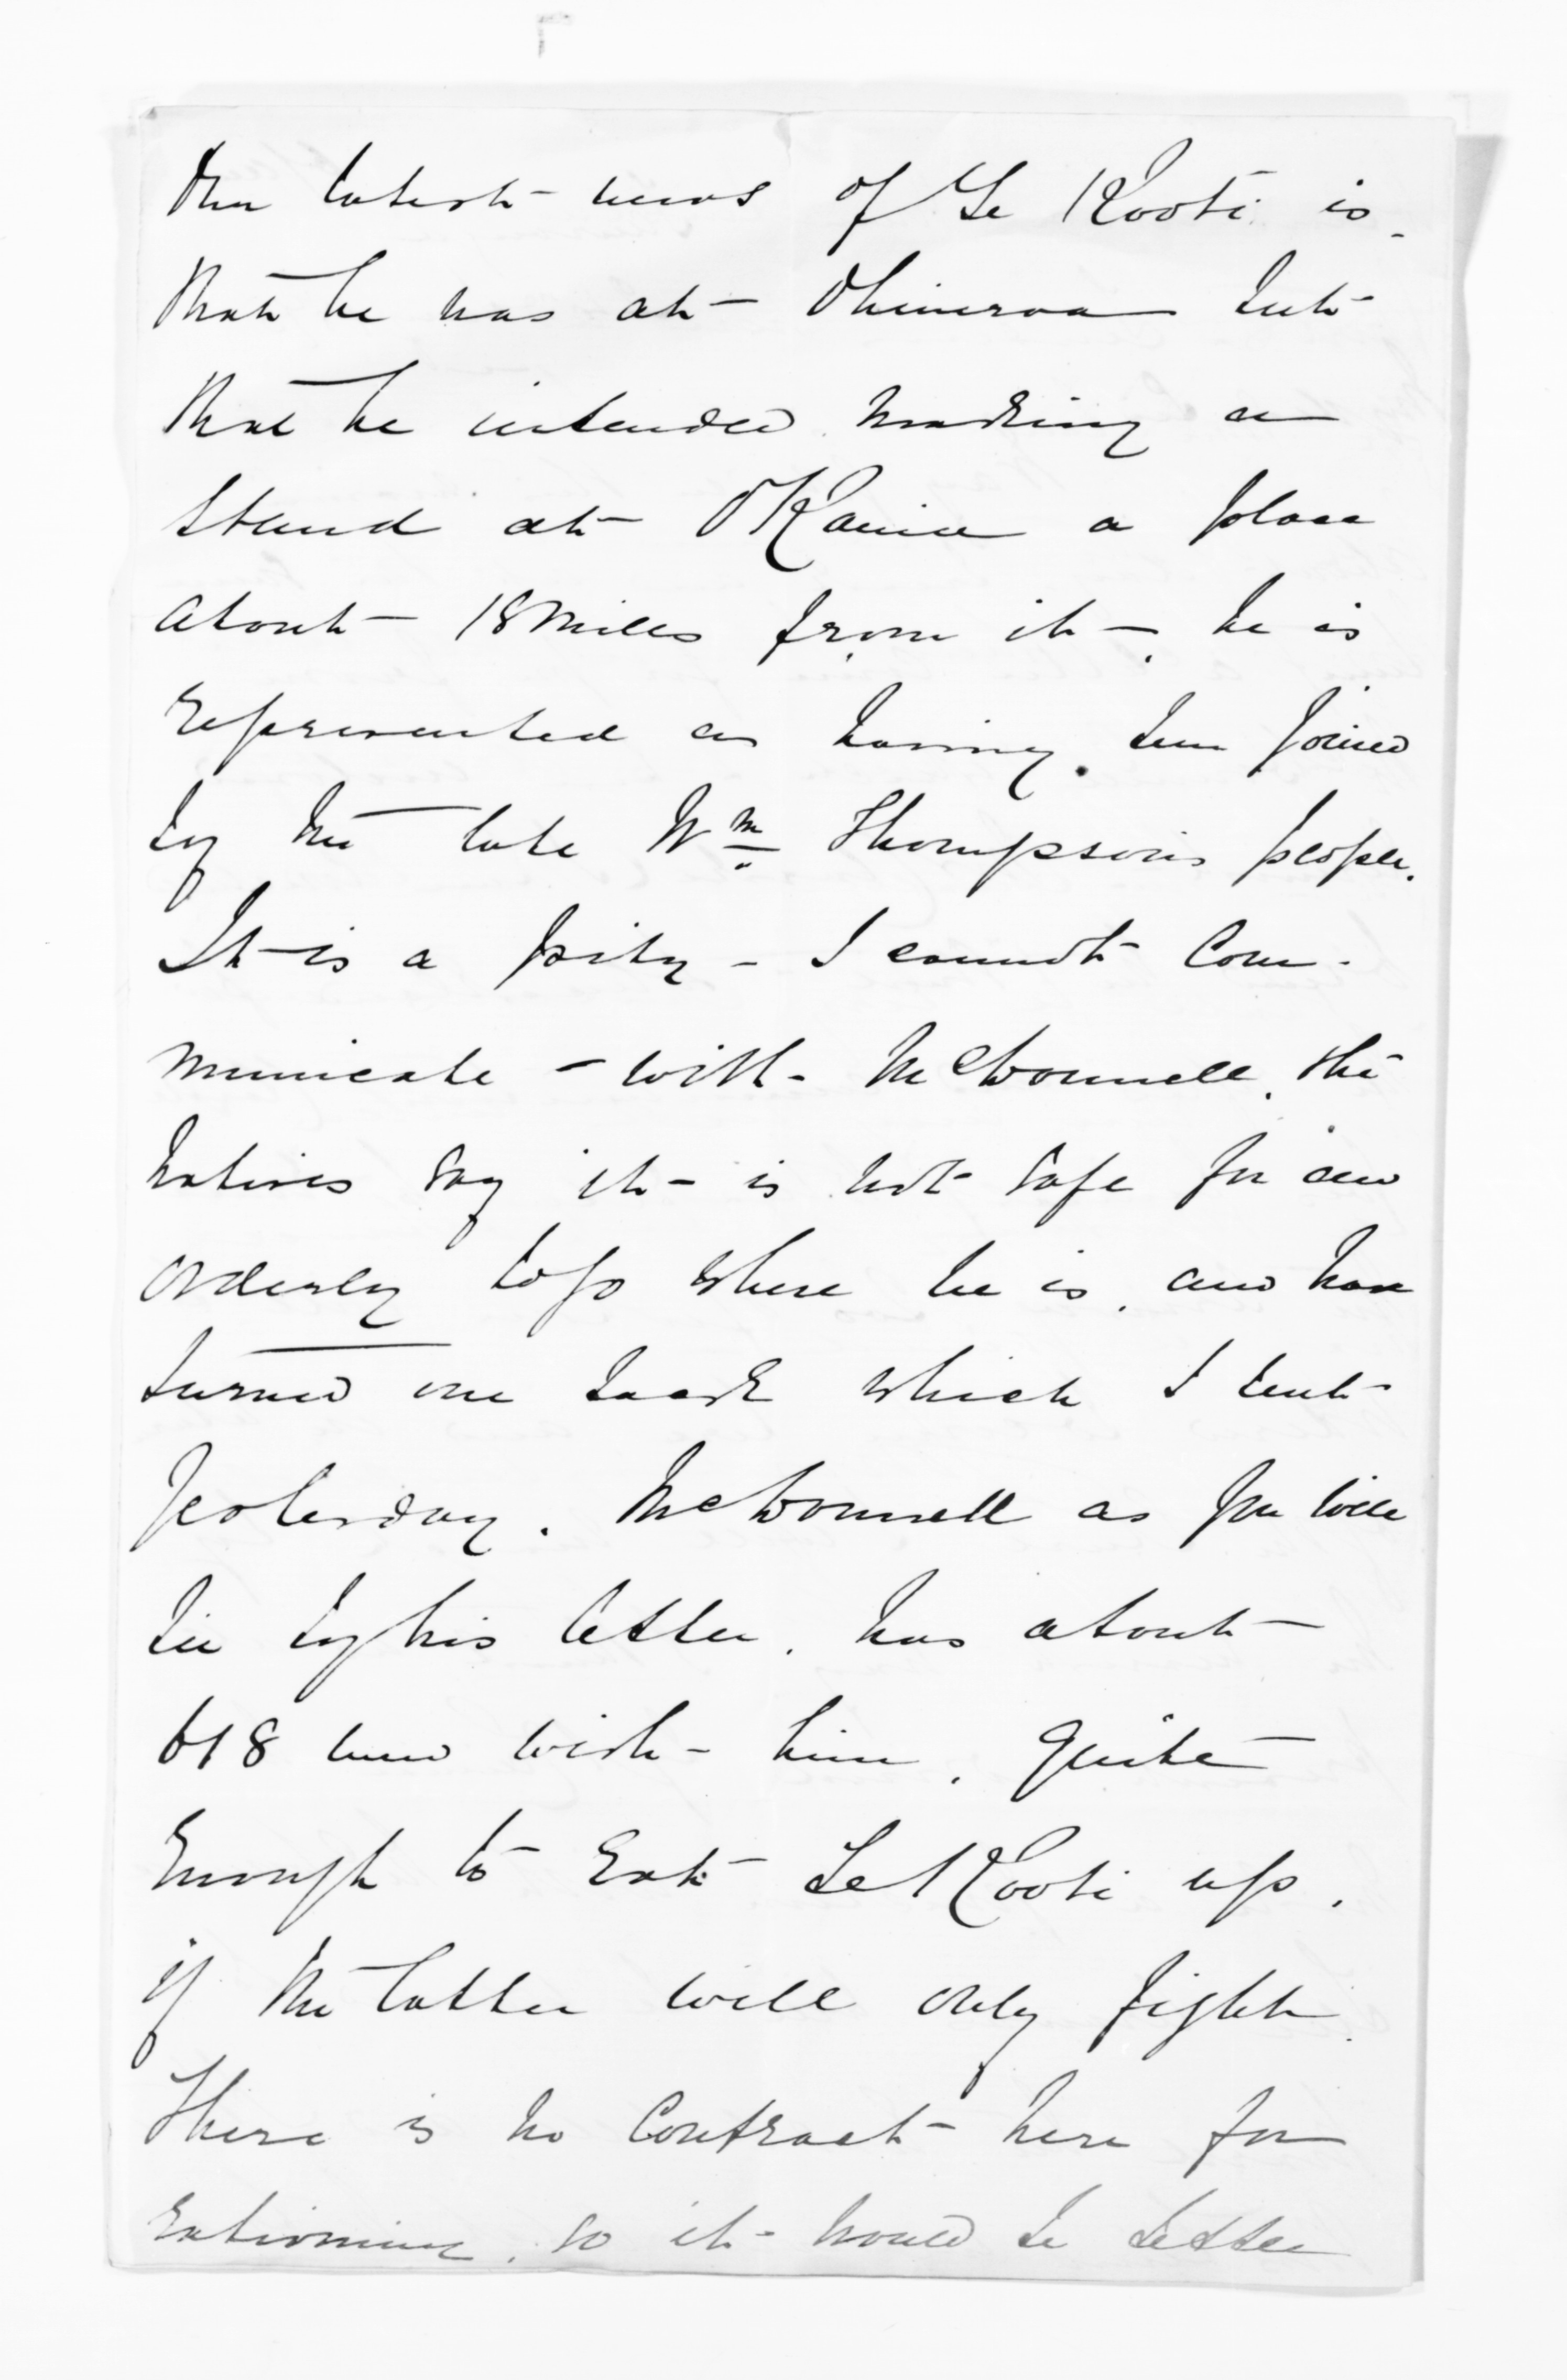 Our latest news of Te Kooti is
that he was at Ohineroa but
that he intended making a
stand at OKauia a place
about 18 miles from it, he is
represented as having been joined
by the late Wm Thompson's people.
It is a pity - I cannot com-
municate - with McDonnell, the
natives say it is not safe for an
orderly to go where he is, and have
turned one back which I sent
yesterday. McDonnell as you will
see by his letter, has about
618 men with him, quite
enough to eat Te Kooti up,
if the latter will only fight.
There is no contract here for
rationing, so it would be better